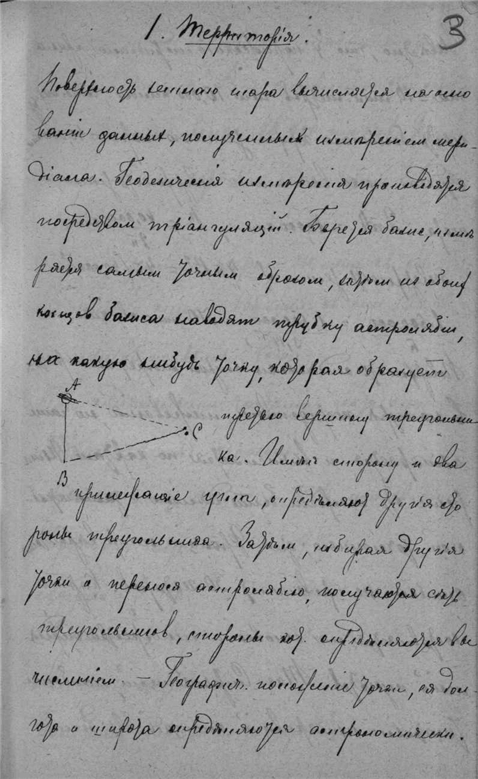 3
1. Территорія.
Поверхность земнаго шара вычисляется на осно
ваніи данныхъ, полученныхъ измѣреніем мери-
діана. Геодезическія измѣренія производятся
посредством тріангуляцій. Берется базис, измѣ
ряется самым точным образом, затѣм из обоих
концов базиса наводят трубку астролябіи,
на какую нибудь точку, которая образует
A
третью вершину треугольни-
C
ка. Имѣя сторону и два
B
прилежащіе угла, опредѣляют другія сто
роны треугольника. Затѣм, избирая другія
точки и перенося астролябію, получается сѣть
треугольников, стороны кот. опредѣляются вы
численіем — Географич. положеніе точки, ея дол-
гота и широта опредѣляются астрономически.